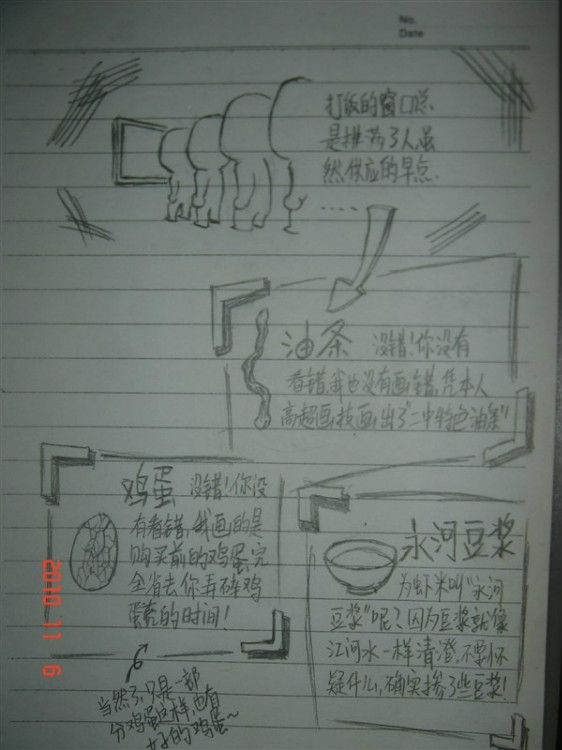 No.
Date
打饭的窗口总
是排荠了人虽
然供应的早点
......
油条 没错!你没有
看错,我也没有画错,凭本人
高超画技画出了"二中特色油条"
鸡蛋 没错!你没
有看错,我画的是
购买前的鸡蛋,完
全省去你弄碎鸡
蛋壳的时间!
当然了,只是一部
分鸡蛋这样,也有
好的鸡蛋~
永河豆浆
为虾米叫"永河
豆浆"呢?因为豆浆就像
江河水一样清澄,不要怀
疑什么,确实掺了些豆浆!
2010 11 6